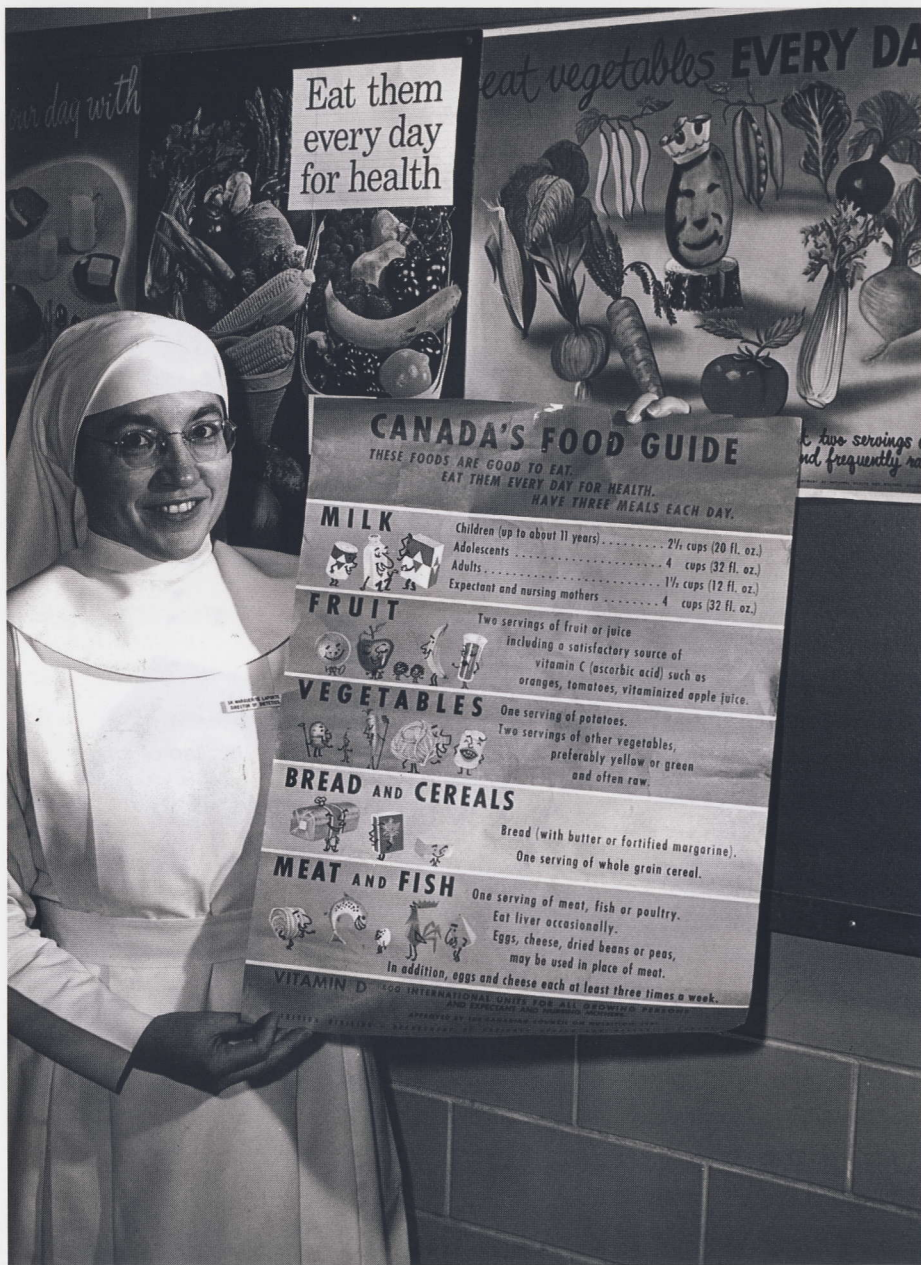 our day with
Eat them
every day
for health
eat vegetables EVERY DA
t two servings
nd frequently ra
SR MARGUERITE LAPORTE
DIRECTOR OF DIETETICS
CANADA'S FOOD GUIDE
THESE FOODS ARE GOOD TO EAT.
EAT THEM EVERY DAY FOR HEALTH.
HAVE THREE MEALS EACH DAY.
MILK
Children (up to about 11 years) ......... 2½ cups (20 fl. oz.)
Adolescents ..................... 4 cups (32 fl. oz.)
Adults .......................... 1½ cups (12 fl. oz.)
Expectant and nursing mothers ........ 4 cups (32 fl. oz.)
FRUIT
Two servings of fruit or juice
including a satisfactory source of
vitamin C (ascorbic acid) such as
oranges, tomatoes, vitaminized apple juice.
VEGETABLES
One serving of potatoes.
Two servings of other vegetables,
preferably yellow or green
and often raw.
BREAD AND CEREALS
Bread (with butter or fortified margarine).
One serving of whole grain cereal.
MEAT AND FISH
One serving of meat, fish or poultry.
Eat liver occasionally.
Eggs, cheese, dried beans or peas,
may be used in place of meat.
In addition, eggs and cheese each at least three times a week.
VITAMIN D 400 INTERNATIONAL UNITS FOR ALL GROWING PERSONS
AND EXPECTANT AND NURSING MOTHERS
APPROVED BY THE CANADIAN COUNCIL ON NUTRITION